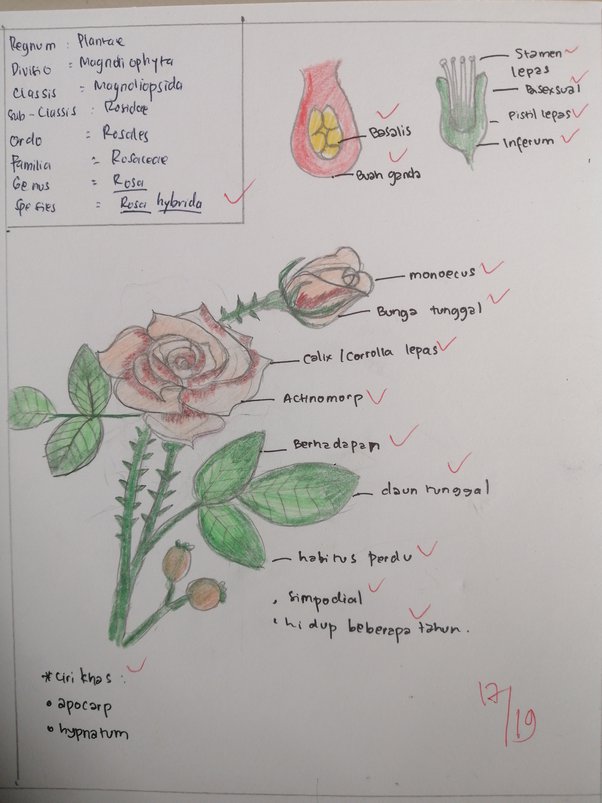 Regnum : Plantae
Divisio = Magnoliophyta
Classis = Magnoliopsida
Sub-Classis : Rosidae
Ordo = Rosales
Familia = Rosaceae
Genus = Rosa
Species = Rosa hybrida
Basalis
Buah ganda
Stamen lepas
Biseksual
Pistil lepas
Inferum
monoecus
Bunga tunggal
Calix / Corrolla lepas
Actinomorp
Berhadapan
daun tunggal
habitus perdu
• simpodial
• hidup beberapa tahun.
* Ciri khas :
• apocarp
• hypnatum
17/19